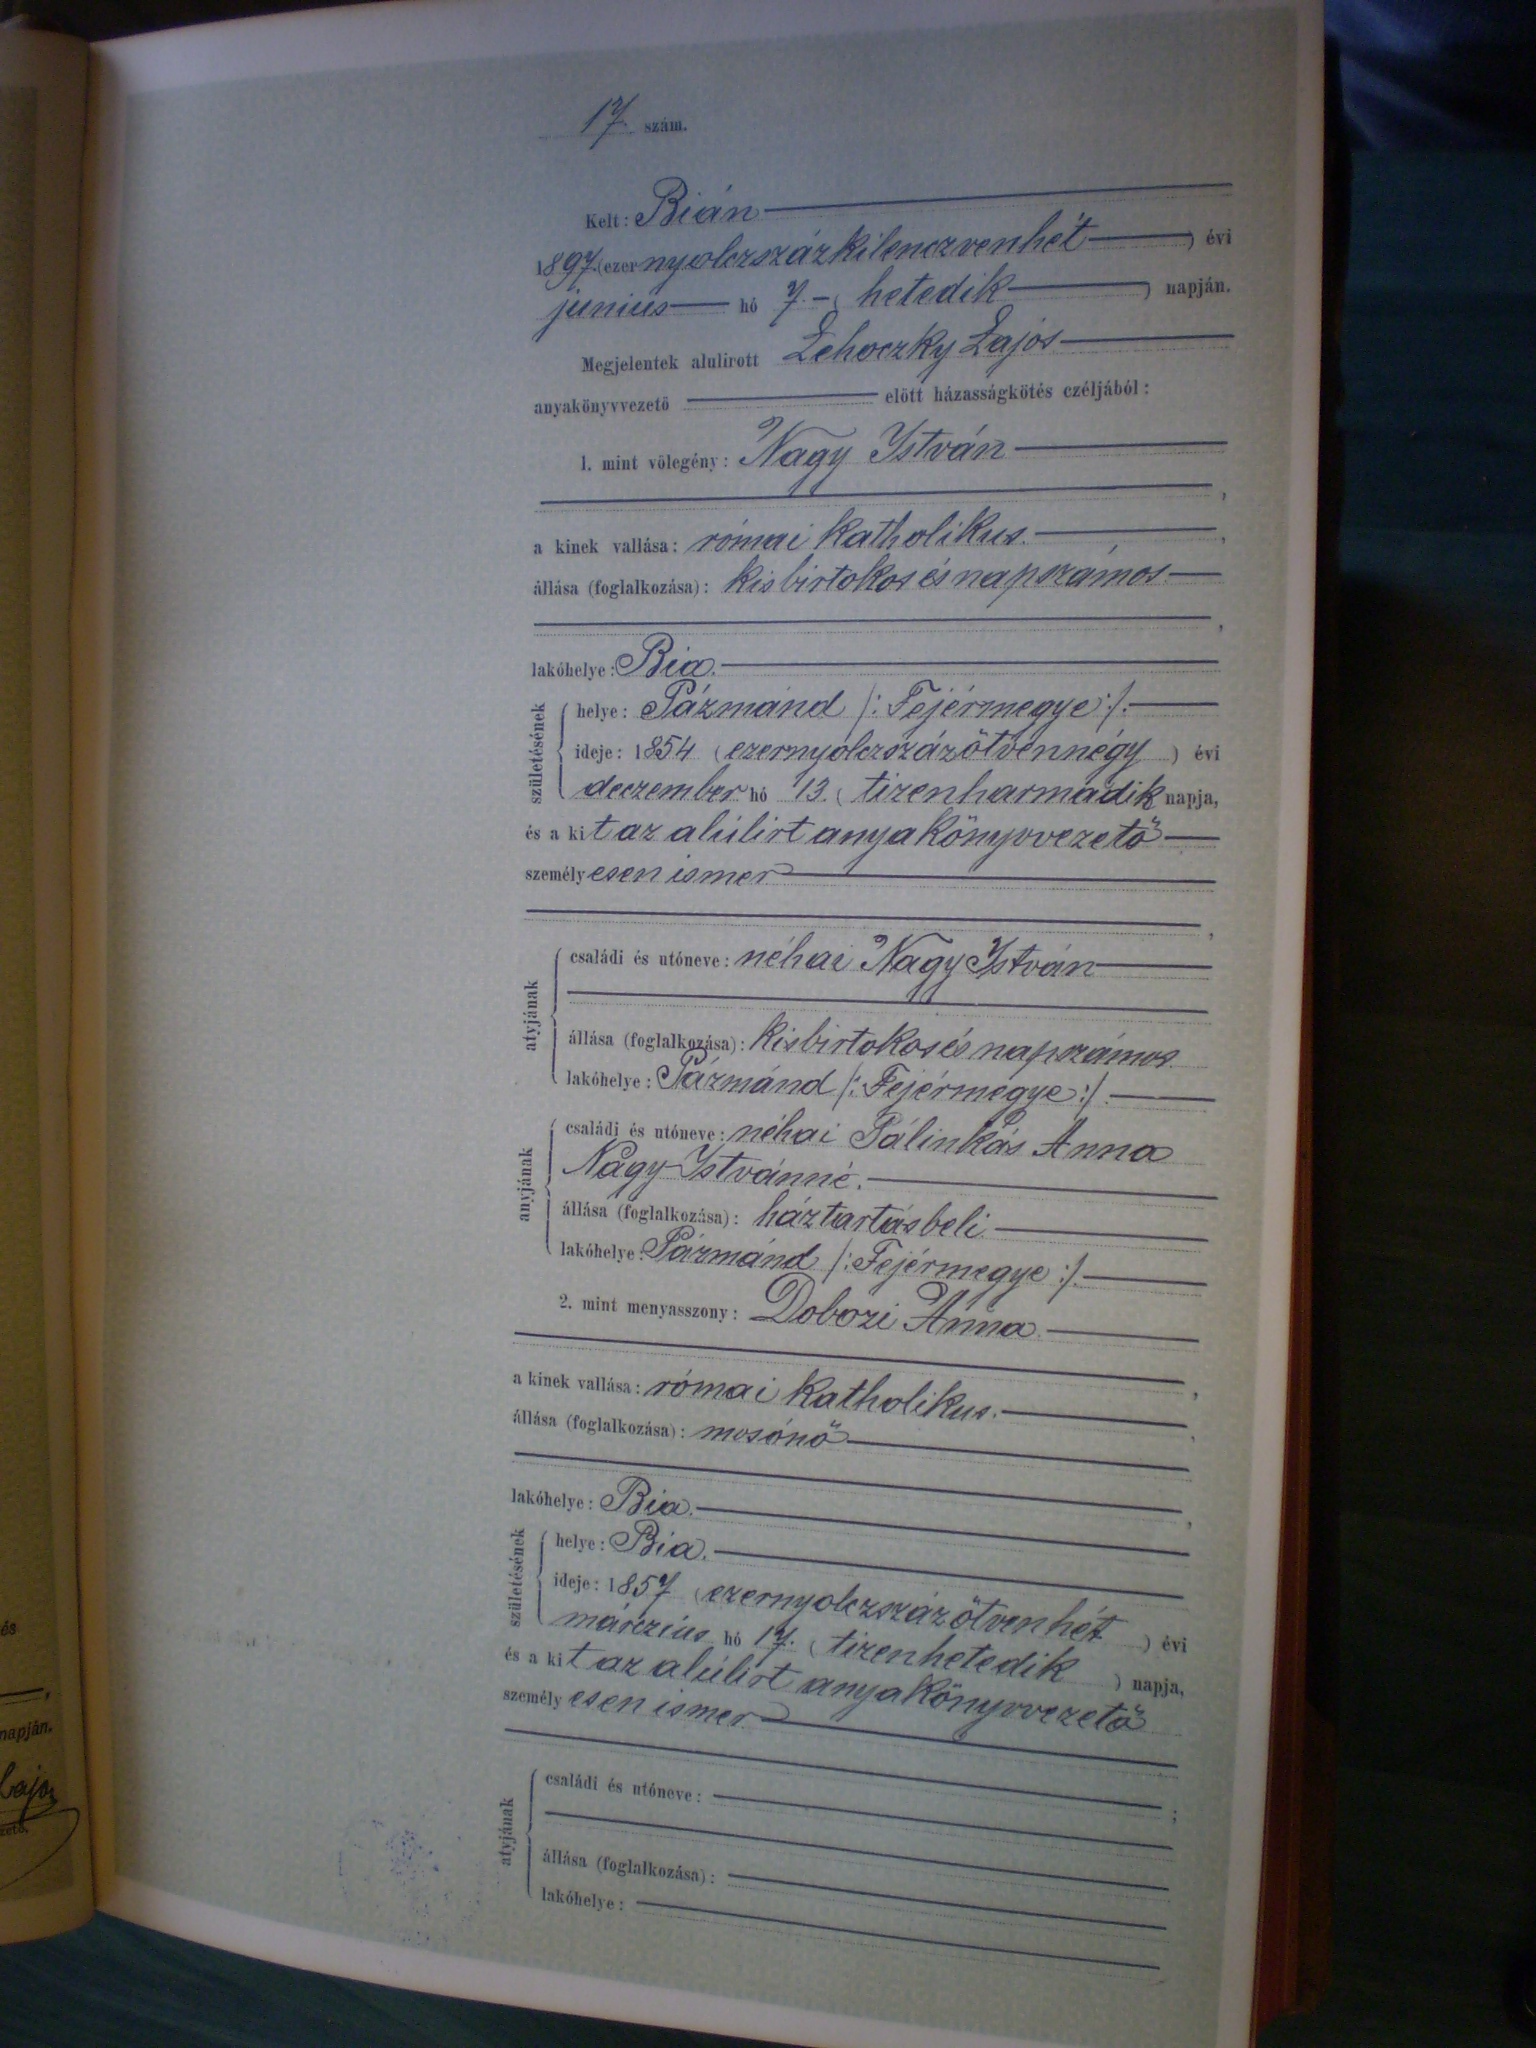 17. szám.
Kelt: Bián
1897. (ezernyolczszázkilenczvenhét) évi
junius hó 7. (hetedik) napján.
Megjelentek alulírott Lehoczky Lajos
anyakönyvvezető előtt házasságkötés czéljából:
1. mint vőlegény: Nagy István
,
a kinek vallása: római katholikus.,
állása (foglalkozása): kisbirtokos és napszámos
,
lakóhelye: Bia.
születésének
helye: Pázmánd /: Fejérmegye :/.
ideje: 1854 (ezernyolczszázötvennégy) évi
deczember hó 13. (tizenharmadik napja,
és a kit az alúlirt anyakönyvvezető
személyesen ismer
,
atyjának
családi és utóneve: néhai Nagy István
állása (foglalkozása): kisbirtokos és napszámos.
lakóhelye: Pázmánd /: Fejérmegye :/.
anyjának
családi és utóneve: néhai Pálinkás Anna
Nagy Istvánné.
állása (foglalkozása): háztartásbeli
lakóhelye: Pázmánd /: Fejérmegye :/.
2. mint menyasszony: Dobozi Anna.
,
a kinek vallása: római katholikus.,
állása (foglalkozása): mosónő
,
lakóhelye: Bia.
születésének
helye: Bia.
ideje: 1857 (ezernyolczszázötvenhét) évi
márczius hó 17. (tizenhetedik) napja,
és a kit az alúlirt anyakönyvvezető
személyesen ismer
;
atyjának
családi és utóneve:
állása (foglalkozása):
lakóhelye:
és
napján.
Lajos